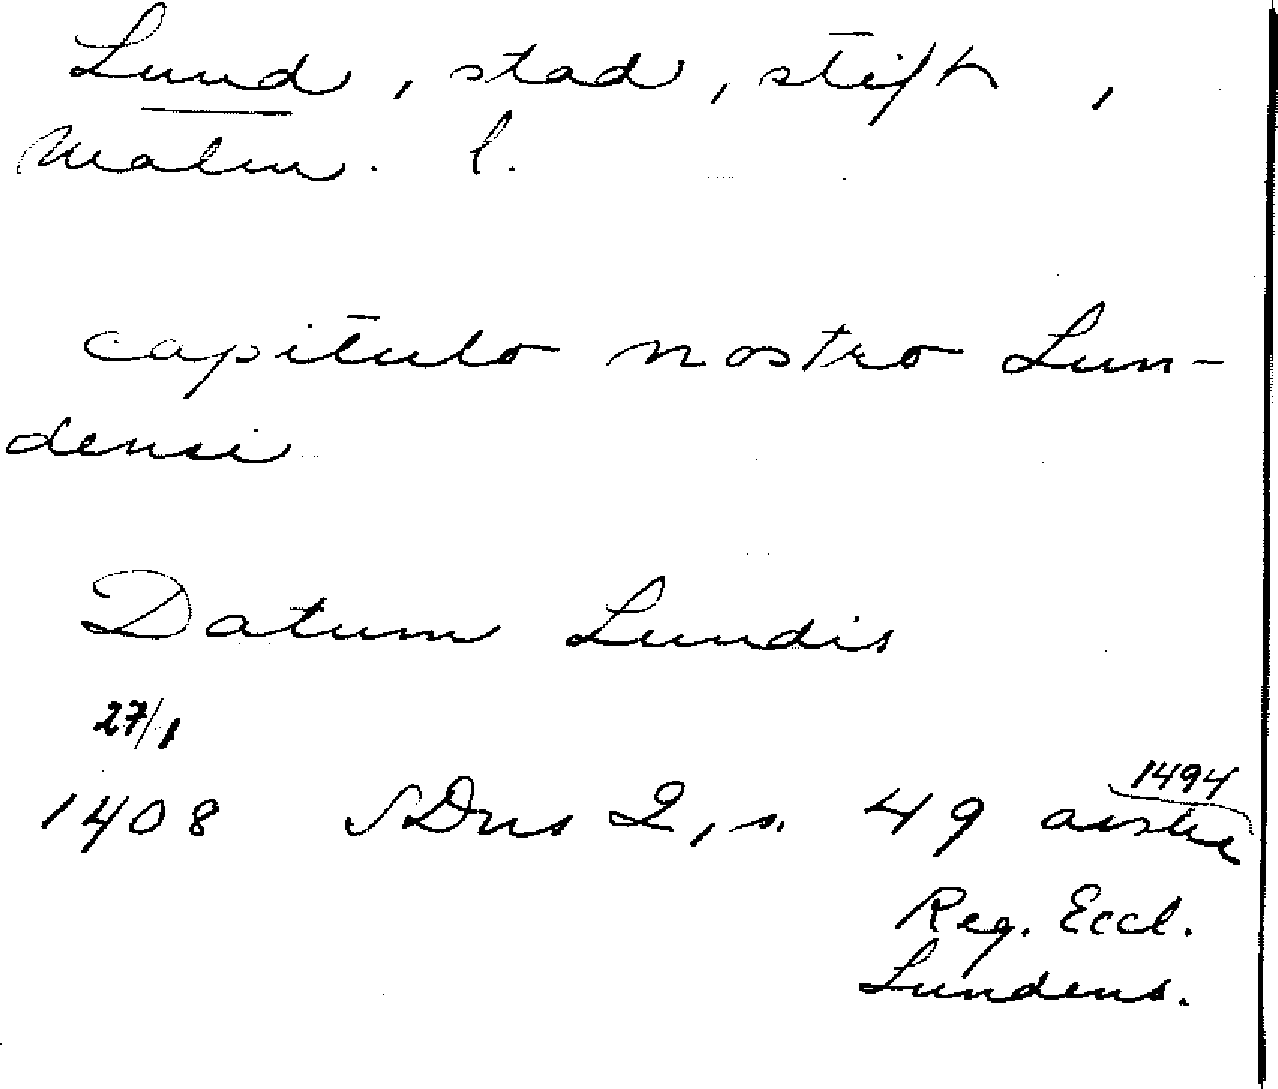 Lund, stad, stift,
Malm. l.
capitulo nostro Lun-
densi
Datum Lundis
27/1
1494
1408 SDns 2, s. 49
Reg. Eccl.
Lundens.